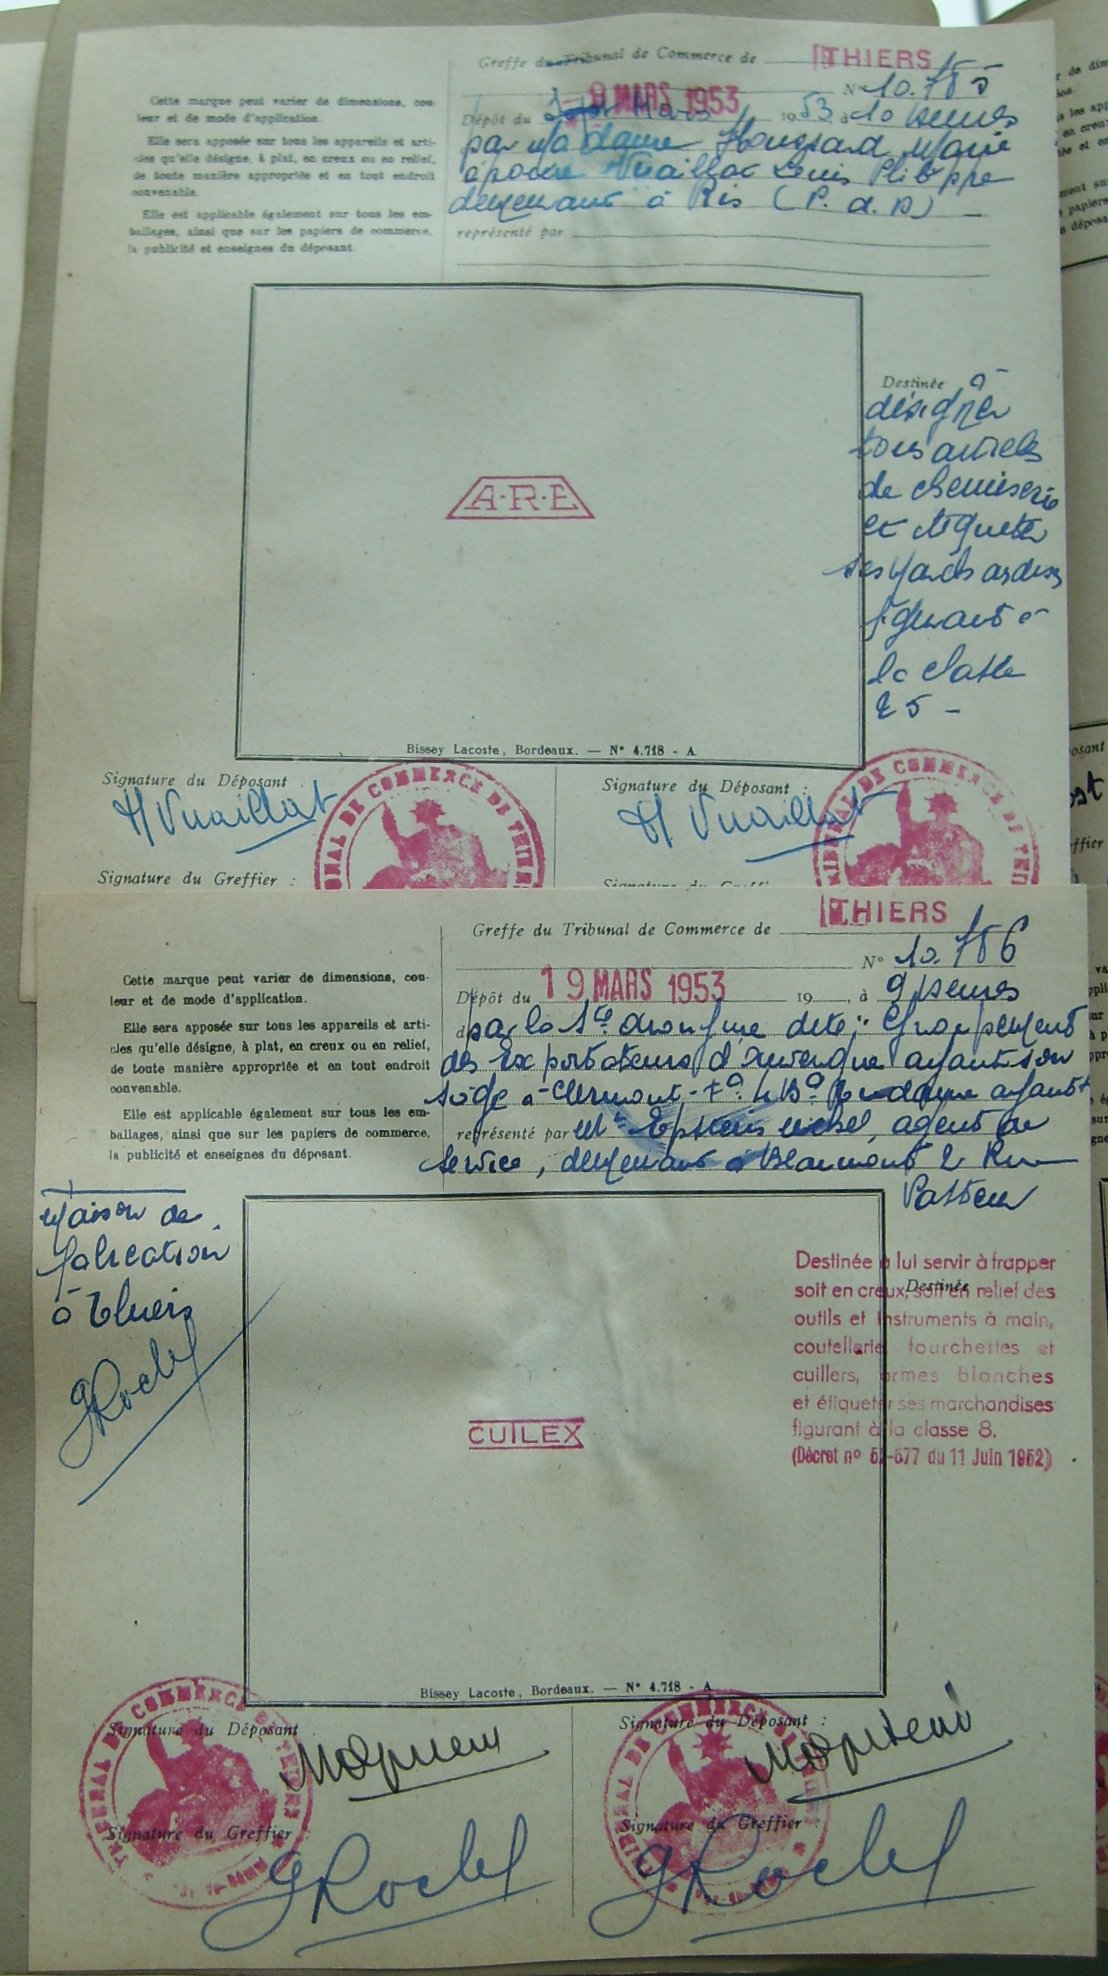 Greffe du Tribunal de Commerce de THIERS
N° 10.785
Dépôt du 9 MARS 1953 1953 à 10 heures
par Madame Houssard Marie
épouse Vuaillat Louis Philippe
demeurant à Ris (P. d. D) -
représenté par
Cette marque peut varier de dimensions, cou-
leur et de mode d'application.
Elle sera apposée sur tous les appareils et arti-
cles qu'elle désigne, à plat, en creux ou en relief,
de toute manière appropriée et en tout endroit
convenable.
Elle est applicable également sur tous les em-
ballages, ainsi que sur les papiers de commerce,
la publicité et enseignes du déposant.
A·R·E
Destinée à
désigner
tous articles
de chemiserie
et étiqueter
ses marchandises
figurant à
la classe
25 -
Bissey Lacoste, Bordeaux. — N° 4.718 - A.
Signature du Déposant :
H Vuaillat
Signature du Déposant :
H Vuaillat
Signature du Greffier :
TRIBUNAL DE COMMERCE DE THIERS
Greffe du Tribunal de Commerce de THIERS
N° 10.786
Dépôt du 19 MARS 1953 19 , à 9 heures
par la Sté anonyme dite : Groupement
des Exportateurs d'Auvergne ayant son
siège à Clermont-Fd
représenté par Mr Epstein Michel, agent de
service, demeurant à Beaumont 2 Rue
Pasteur
Cette marque peut varier de dimensions, cou-
leur et de mode d'application.
Elle sera apposée sur tous les appareils et arti-
cles qu'elle désigne, à plat, en creux ou en relief,
de toute manière appropriée et en tout endroit
convenable.
Elle est applicable également sur tous les em-
ballages, ainsi que sur les papiers de commerce,
la publicité et enseignes du déposant.
Maison de
fabrication
à Thiers
GRochel
CUTLEX
Destinée
Destinée à lui servir à frapper
soit en creux, soit en relief des
outils et instruments à main,
coutellerie, fourchettes et
cuillers, armes blanches
et étiqueter ses marchandises
figurant à la classe 8.
(Décret n° 52-677 du 11 Juin 1952)
Bissey Lacoste, Bordeaux. — N° 4.718 - A.
Signature du Déposant :
Signature du Déposant :
Signature du Greffier :
GRochel
Signature du Greffier :
GRochel
TRIBUNAL DE COMMERCE DE THIERS